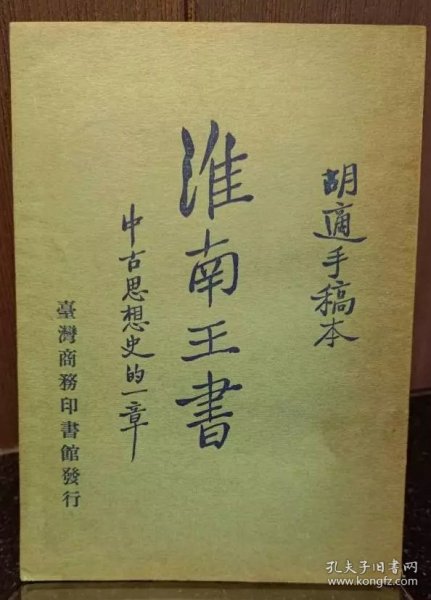 胡適手稿本
淮南王書
中古思想史的一章
臺灣商務印書館發行
孔夫子旧书网
www.kongfz.com